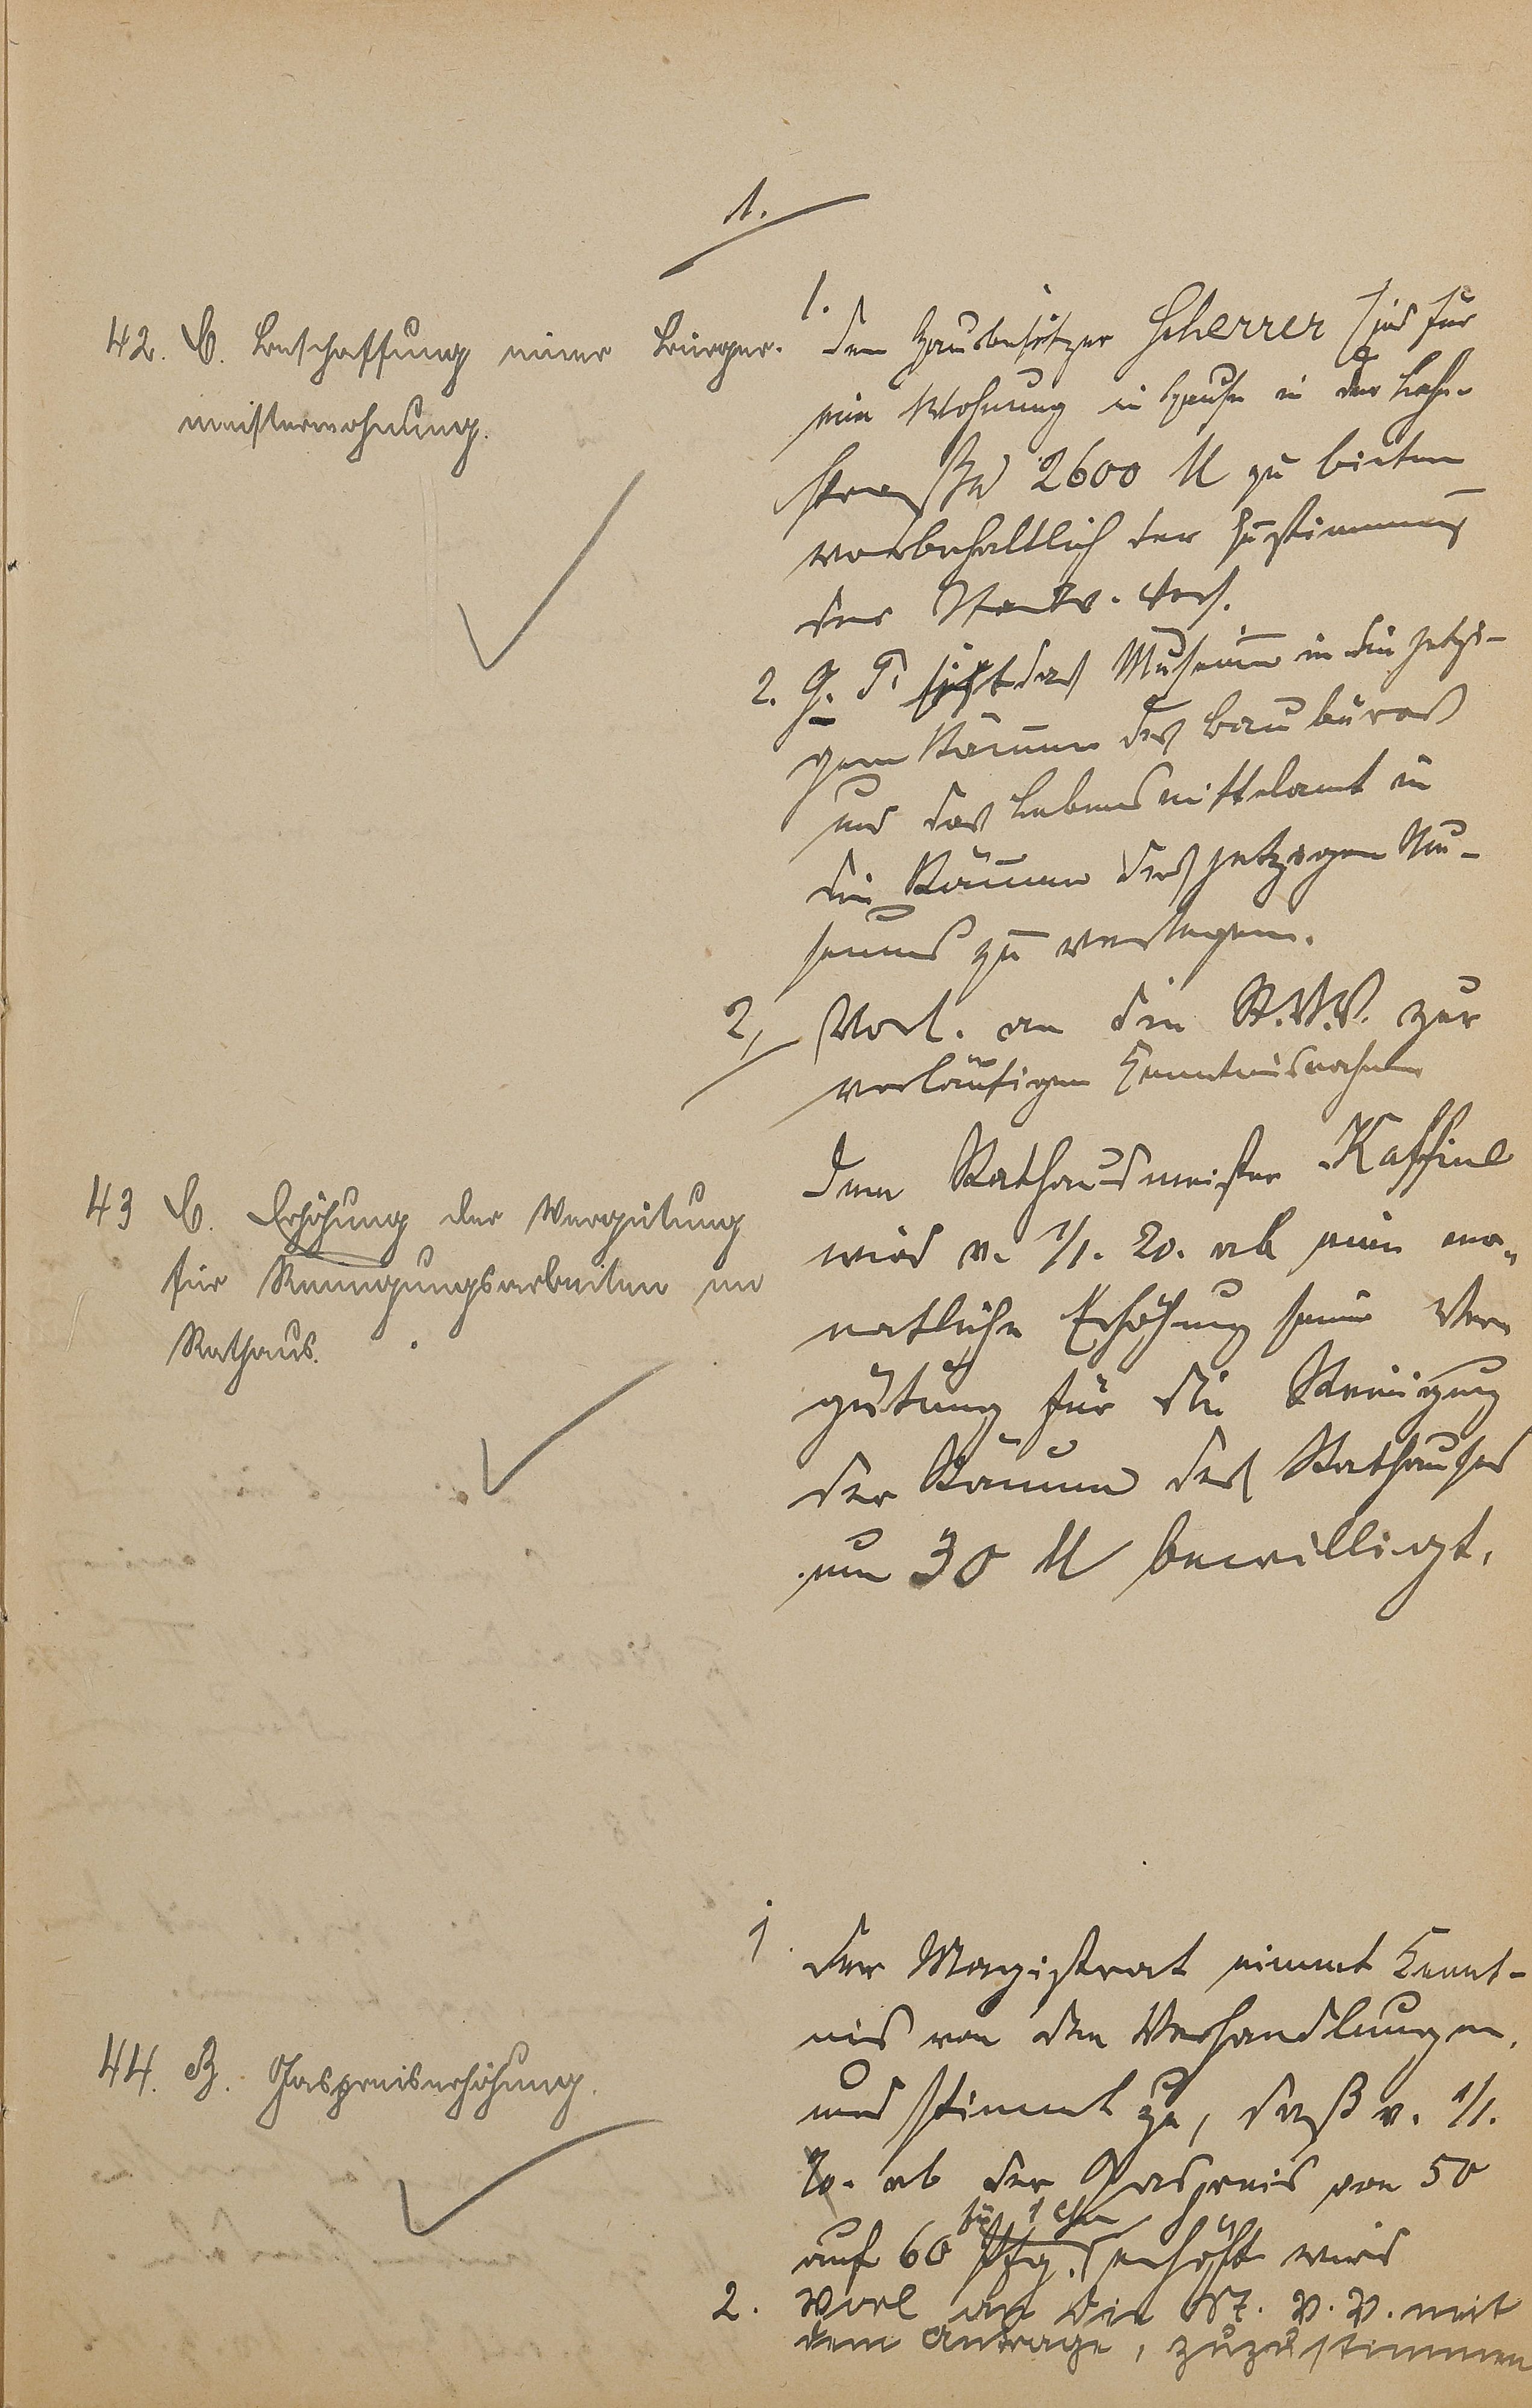 1.
42. C. Beschaffung einer Bürger-
meisterwohnung.
1.
Dem Hausbesitzer Scherrer sind für
eine Wohnung im Hause in der Bahn-
straße 2600 M zu bieten
vorbehaltlich der Zustimmung
der Stadtv. Vers.
2. G. F. ist das Museum in die jetzi-
gen Räume des Baubüros
und das Lebensmittelamt in
die Räume des jetzigen Mu-
seums zu verlegen.
2, Vorl. an die St.V.V. zur
vorläufigen Kenntnisnahme
43 C. Erhöhung der Vergütung
für Reinigungsarbeiten im
Rathaus.
Dem Rathausmeister Kaffine
wird v. 1/1. 20. ab eine mo-
natliche Erhöhung seiner Ver-
gütung für die Reinigung
der Räume des Rathauses
um 30 M bewilligt.
44. B. Gaspreiserhöhung.
1. Der Magistrat nimmt Kennt-
nis von den Verhandlungen
und stimmt zu, daß v. 1/1.
20. ab der Gaspreis von 50
auf 60 Pfg. für 1 cbm erhöht wird
2. Vorl an die St. V. V. mit
dem Antrage, zuzustimmen